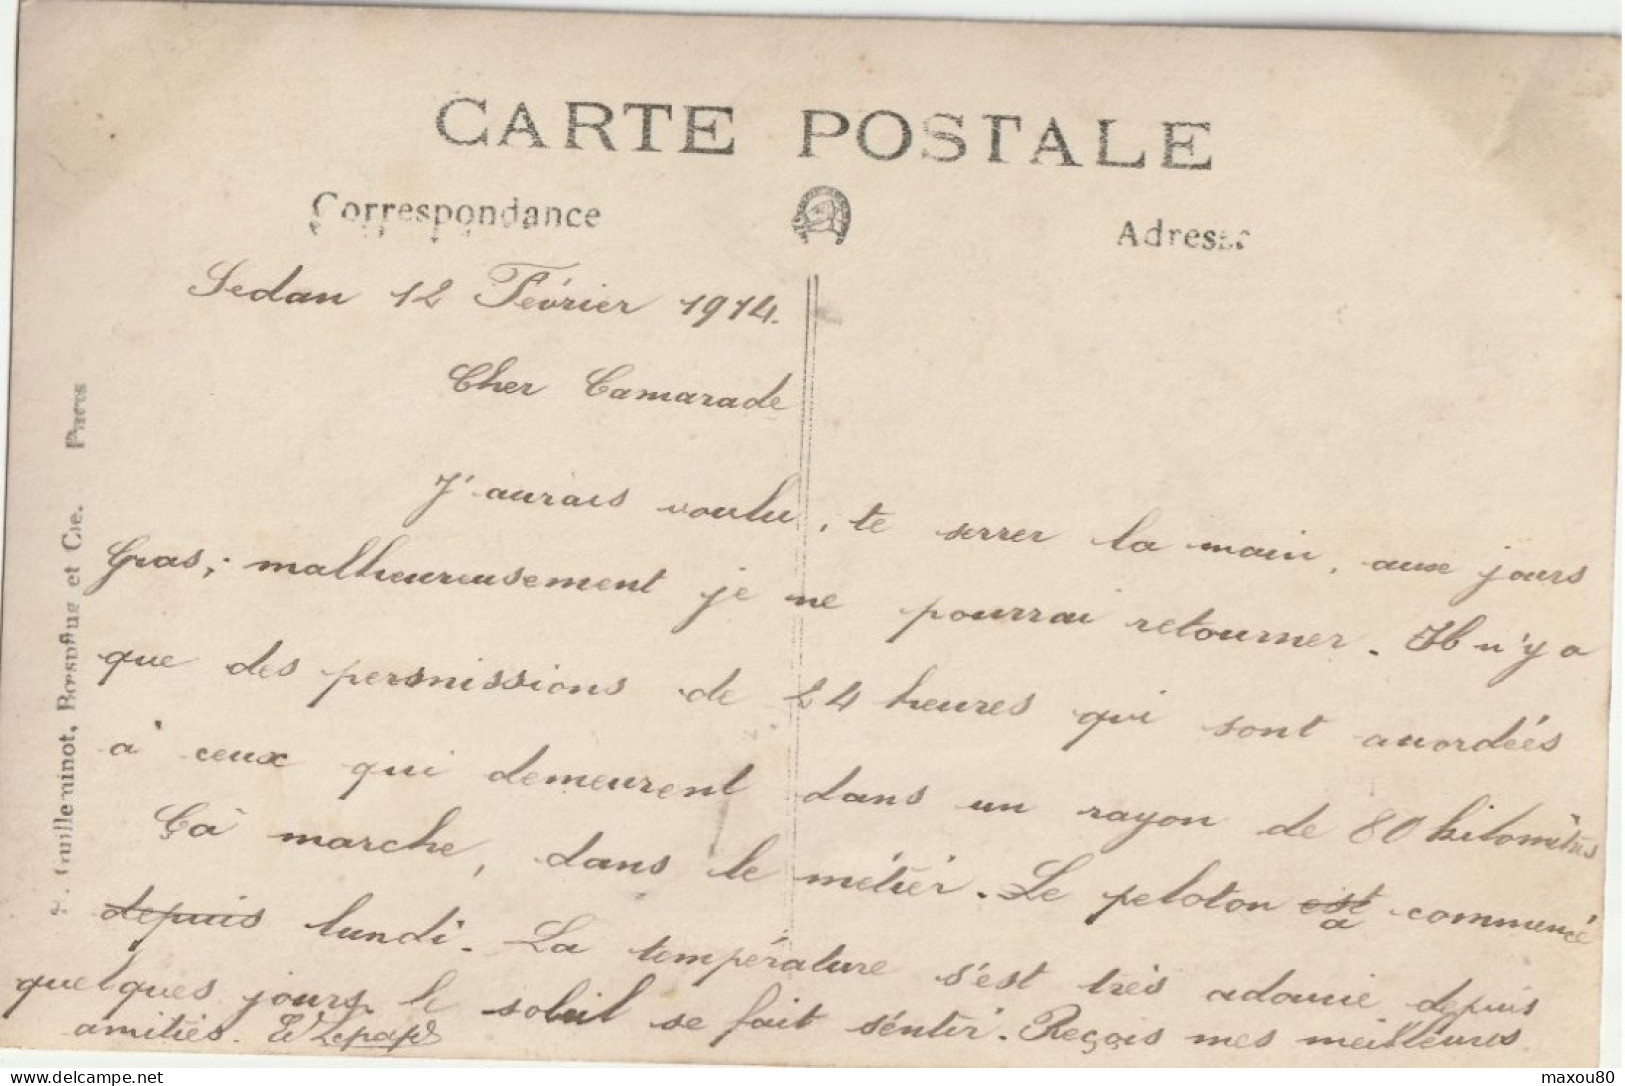 CARTE POSTALE
Correspondance
Adresse
Sedan 12 Février 1914.
Cher Camarade
J'aurais voulu, te serrer la main, aux jours
Gras; malheureusement je ne pourrai retourner. Il n'y a
que des permissions de 24 heures qui sont accordées
à ceux qui demeurent dans un rayon de 80 kilomètres
Çà marche, dans le métier. Le peloton est a commencé
depuis lundi. La température s'est très adoucie depuis
quelques jours, le soleil se fait séntir. Reçois mes meilleures
amitiés.
Guilleminot, Boespflug et Cie. Paris
delcampe.net
maxou80